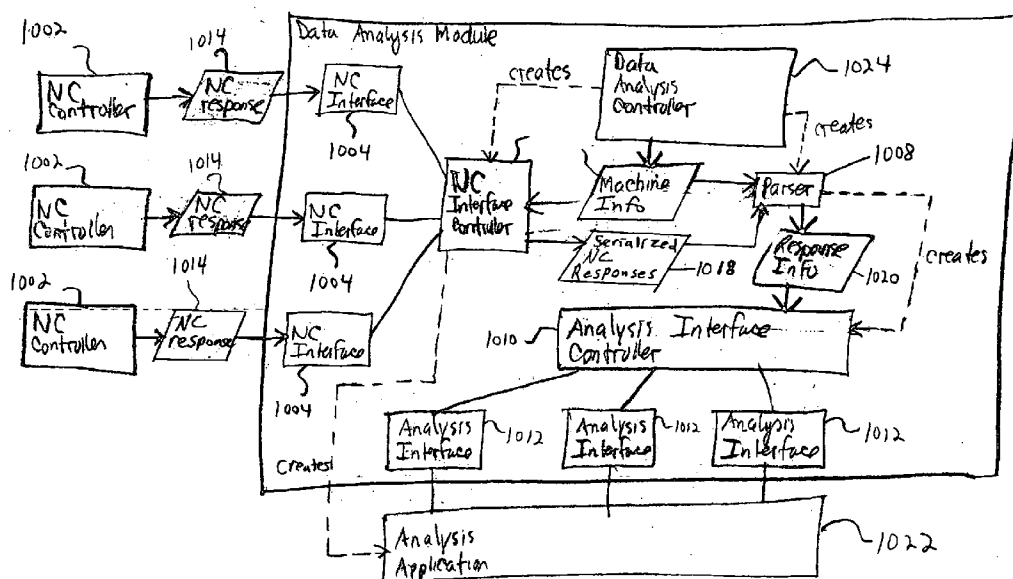 1002
1014
Data Analysis Module
NC
Controller
NC
response
NC
Interface
1004
creates
Data
Analysis
Controller
1024
creates
1002
1014
NC
Controller
NC
response
NC
Interface
1004
NC
Interface
Controller
Machine
Info
Parser
1008
Serialized
NC
Responses
1018
Response
Info
1020
creates
1002
1014
NC
Controller
NC
response
NC
Interface
1004
1010
Analysis Interface
Controller
Analysis
Interface
1012
Analysis
Interface
1012
Analysis
Interface
1012
Creates
Analysis
Application
1022